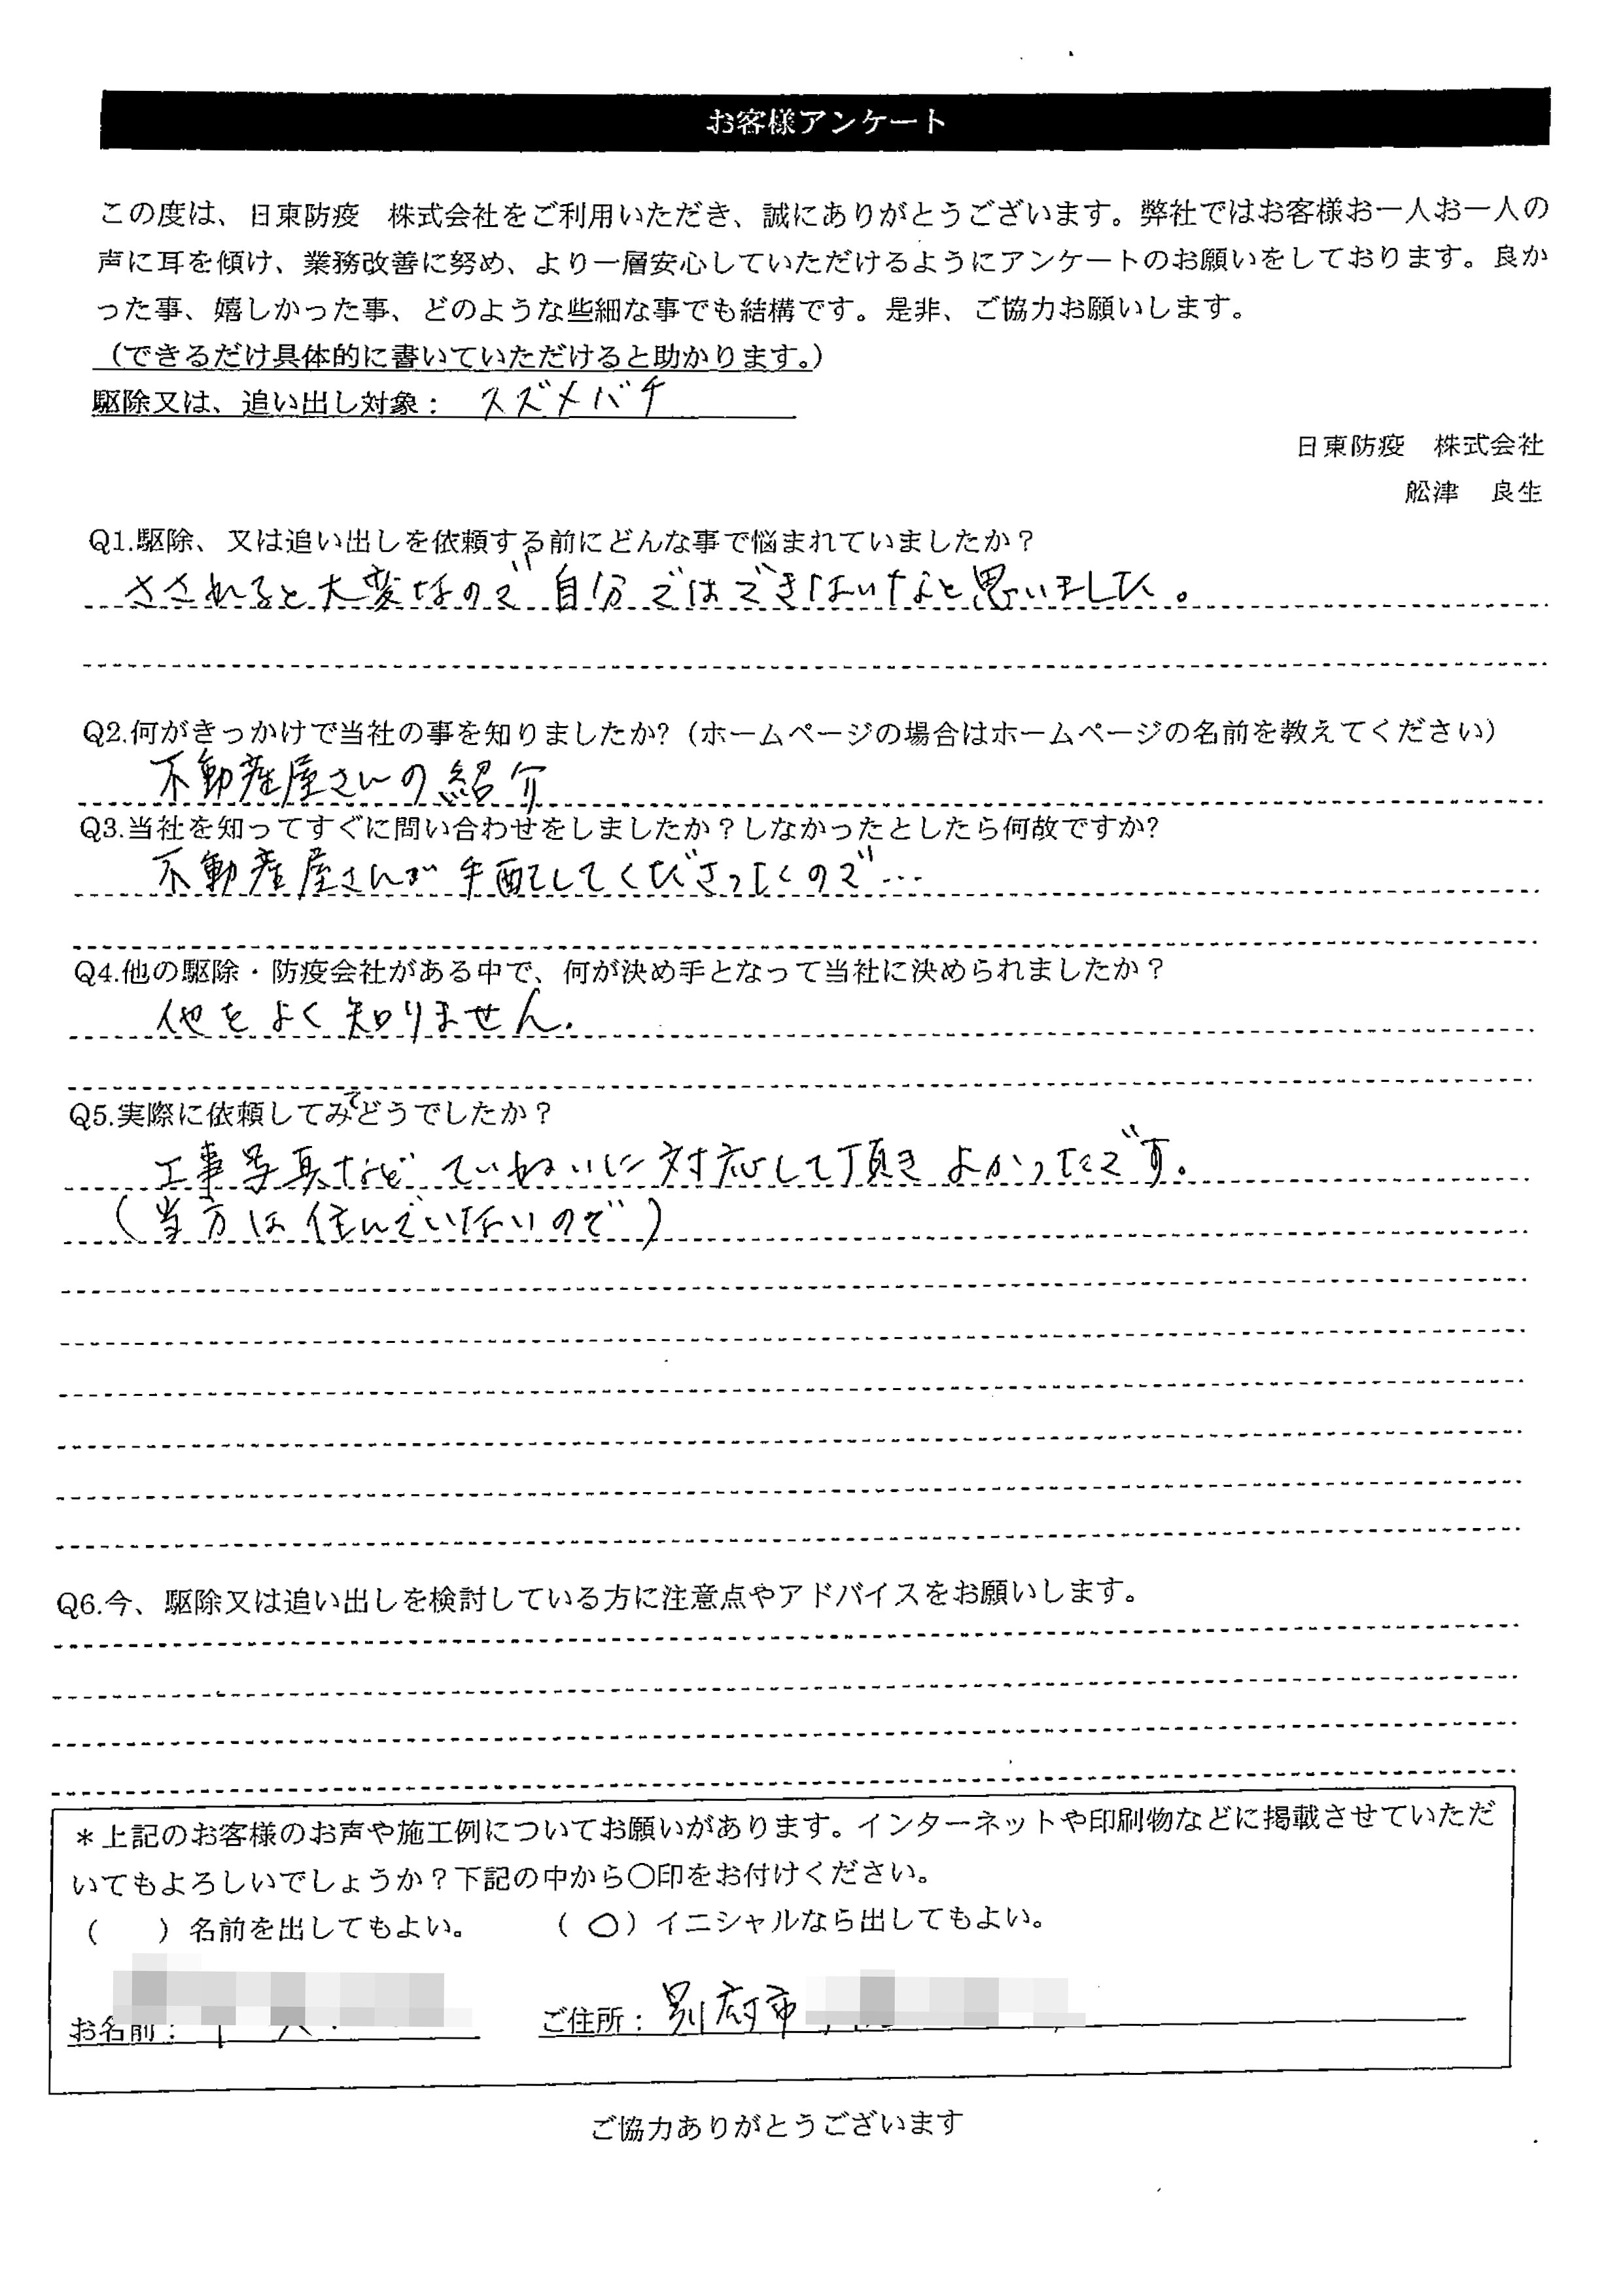 お客様アンケート
この度は、日東防疫　株式会社をご利用いただき、誠にありがとうございます。弊社ではお客様お一人お一人の
声に耳を傾け、業務改善に努め、より一層安心していただけるようにアンケートのお願いをしております。良か
った事、嬉しかった事、どのような些細な事でも結構です。是非、ご協力お願いします。
（できるだけ具体的に書いていただけると助かります。）
駆除又は、追い出し対象： スズメバチ
日東防疫　株式会社
舩津　良生
Q1.駆除、又は追い出しを依頼する前にどんな事で悩まれていましたか？
さされると大変なので自分ではできないなと思いました。
Q2.何がきっかけで当社の事を知りましたか?（ホームページの場合はホームページの名前を教えてください）
不動産屋さんの紹介
Q3.当社を知ってすぐに問い合わせをしましたか？しなかったとしたら何故ですか?
不動産屋さんが手配してくださったので…
Q4.他の駆除・防疫会社がある中で、何が決め手となって当社に決められましたか？
他をよく知りません.
Q5.実際に依頼してみてどうでしたか？
工事写真などていねいに対応して頂きよかったです。
（当方は住んでいないので）
Q6.今、駆除又は追い出しを検討している方に注意点やアドバイスをお願いします。
＊上記のお客様のお声や施工例についてお願いがあります。インターネットや印刷物などに掲載させていただ
いてもよろしいでしょうか？下記の中から〇印をお付けください。
（　　）名前を出してもよい。　　（〇）イニシャルなら出してもよい。
お名前：　　ご住所：別府市
ご協力ありがとうございます